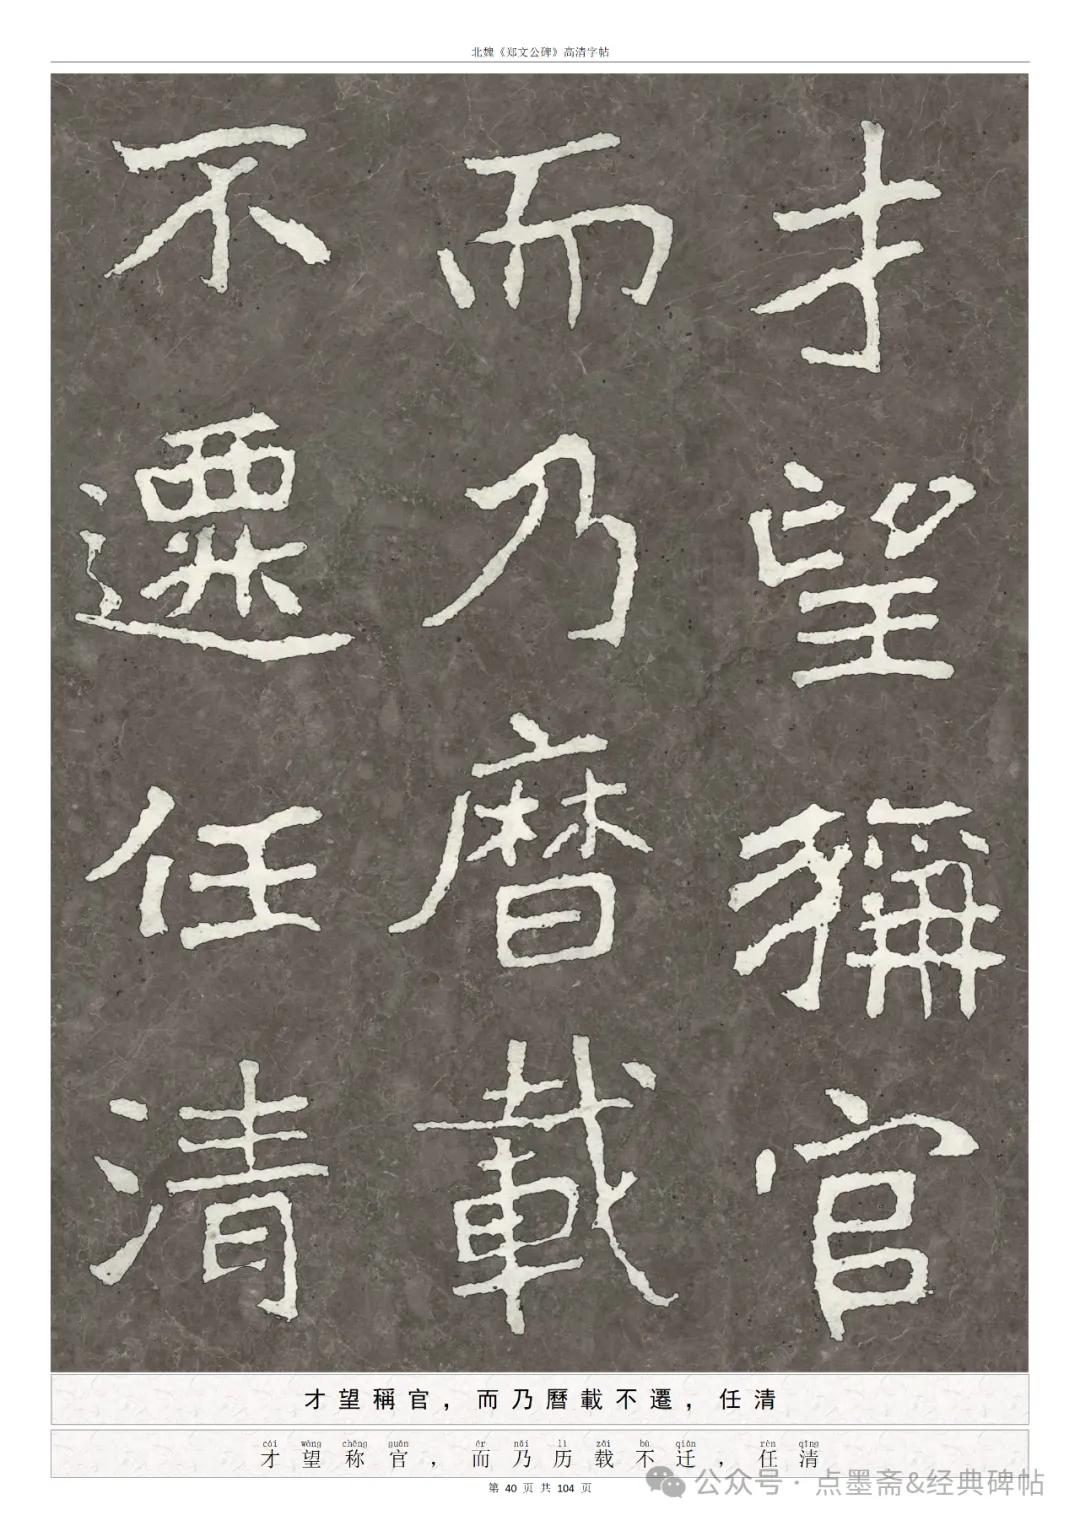 北魏《郑文公碑》高清字帖
才望稱官
而乃曆載
不遷任清
才望稱官，而乃曆載不遷，任清
cái wàng chēng guān ér nǎi lì zǎi bù qiān rèn qīng
才望称官，而乃历载不迁，任清
第 40 页 共 104 页
公众号 · 点墨斋&经典碑帖